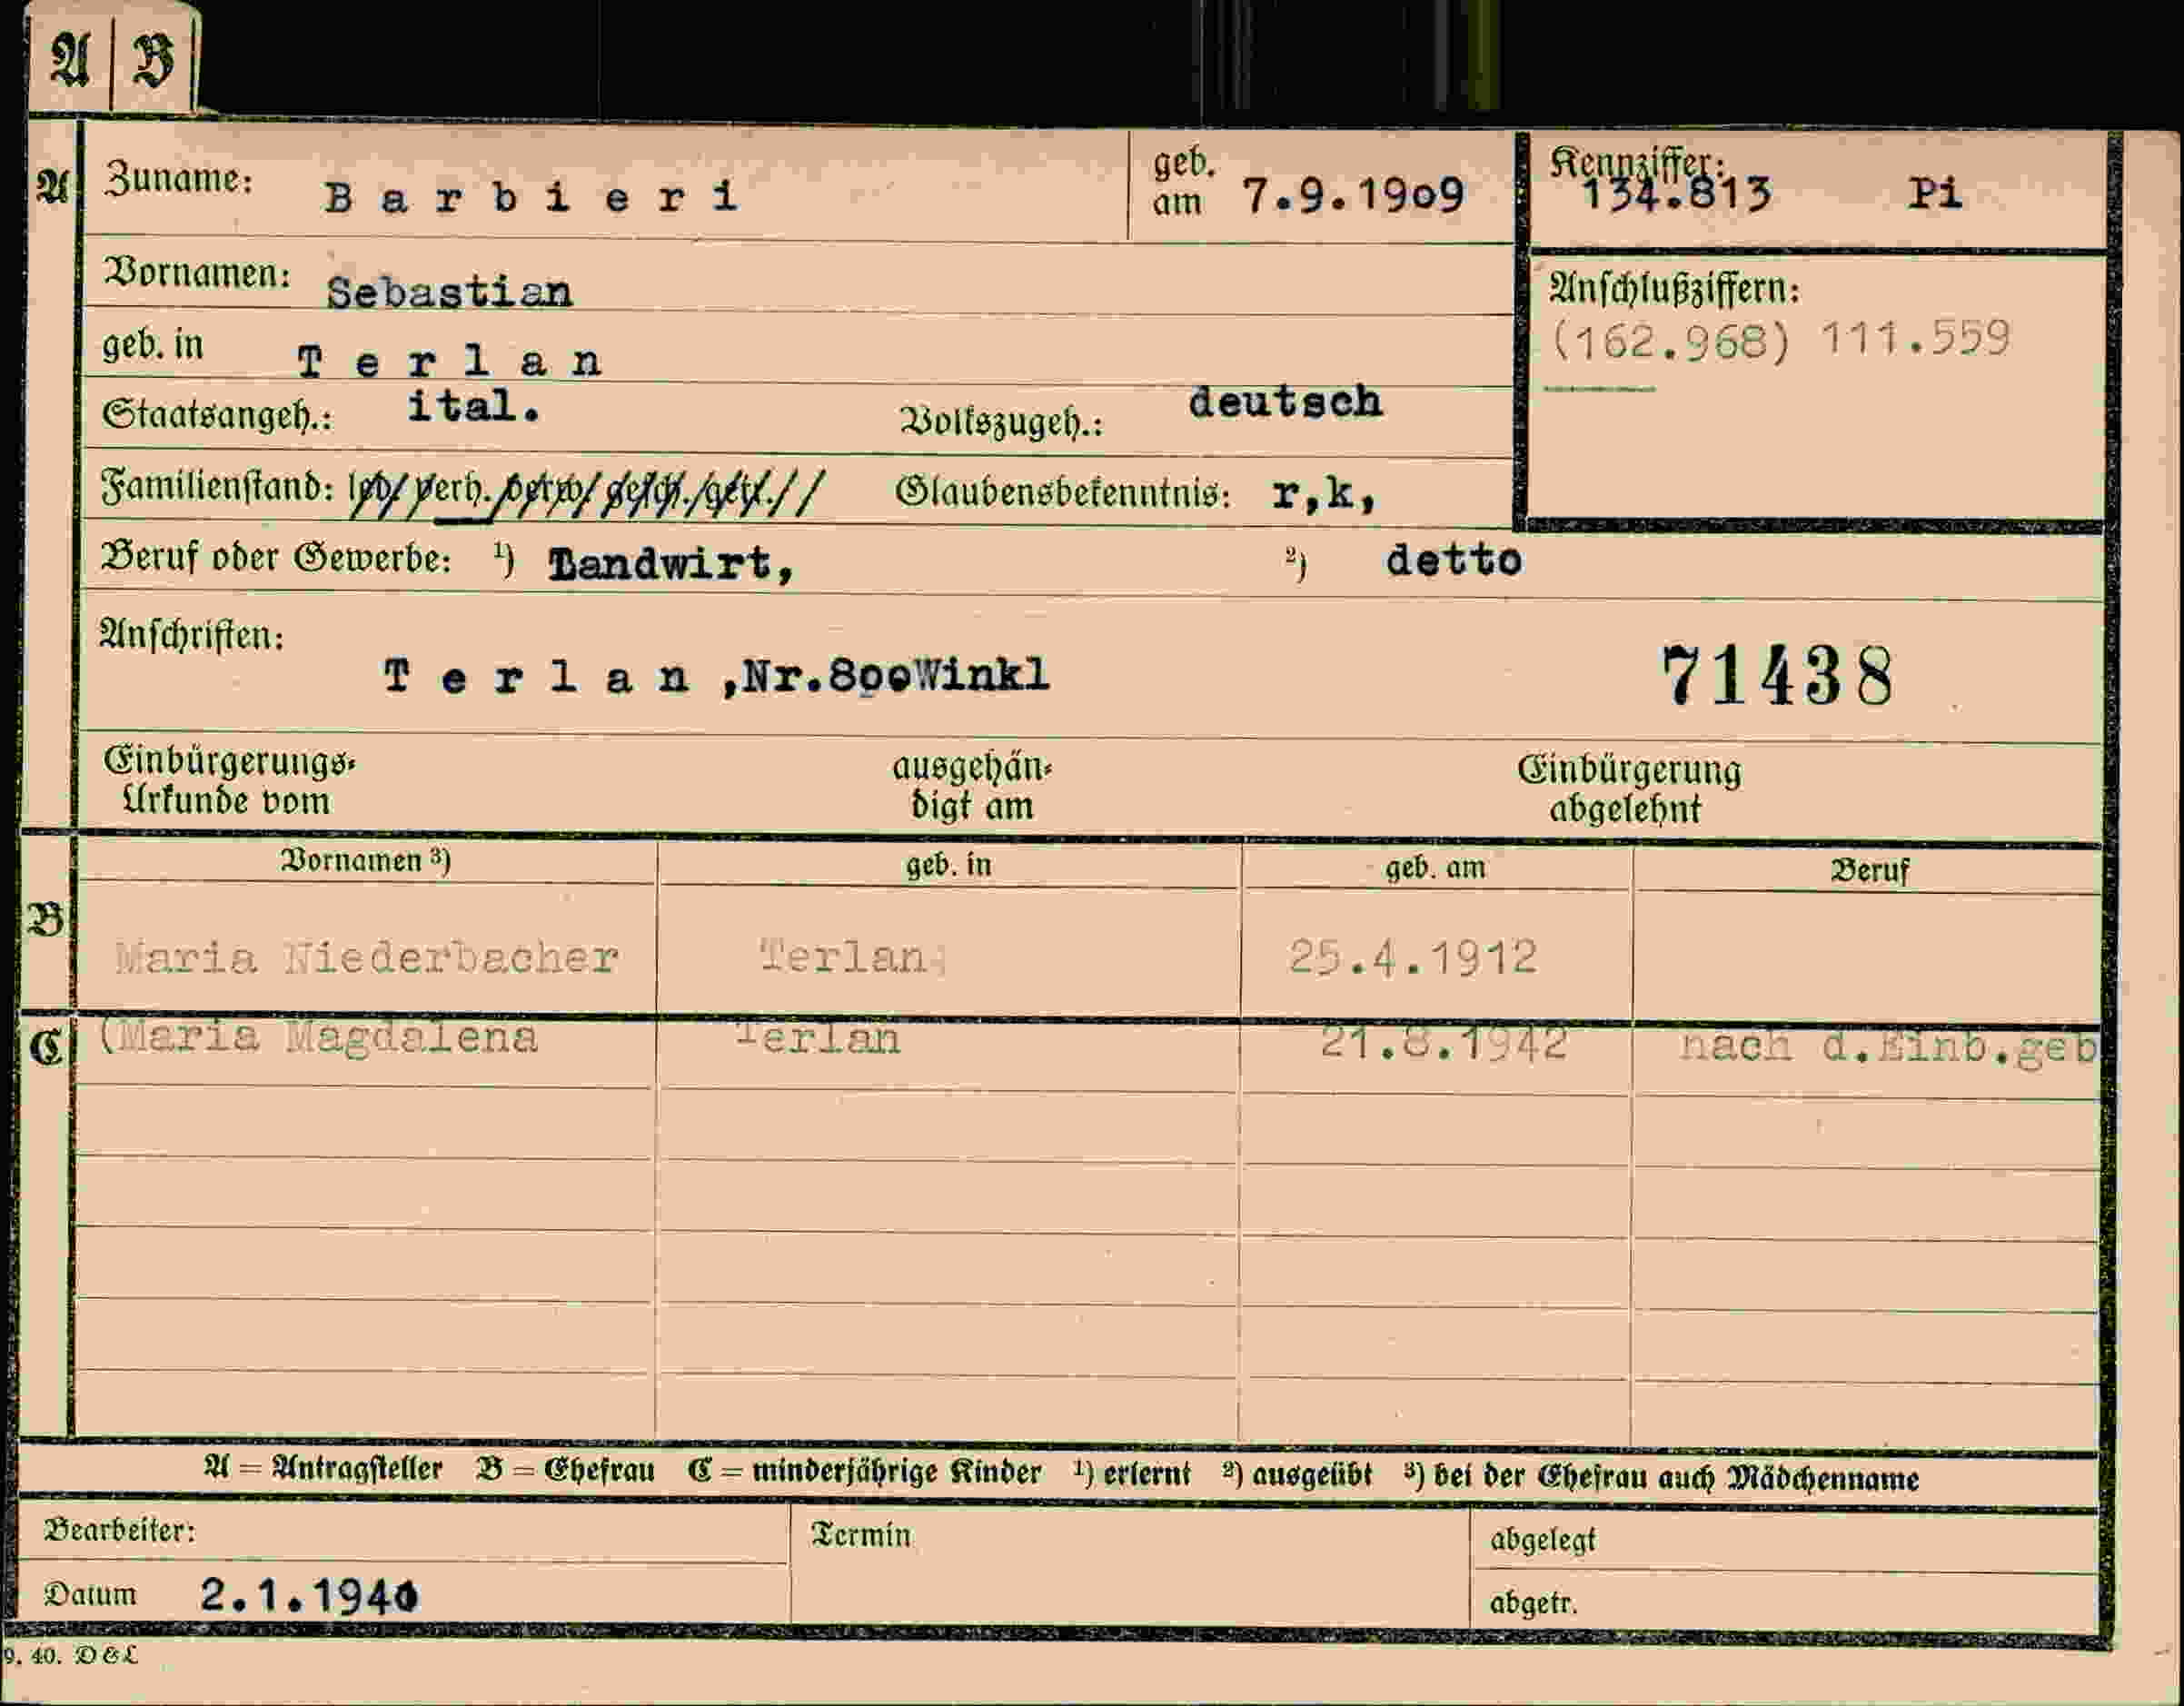 A B
A Zuname: Barbieri geb. am 7.9.1909 Kennziffer: 134.813 Pi
Vornamen: Sebastian Anschlußziffern:
(162.968) 111.559
geb. in Terlan
Staatsangeh.: ital. Volkszugeh.: deutsch
Familienstand: led/ verh. verw/ gesch./getr.// Glaubensbekenntnis: r,k,
Beruf oder Gewerbe: ¹) Landwirt, ²) detto
Anschriften:
Terlan ,Nr.800Winkl 71438
Einbürgerungs- Urkunde vom ausgehän- digt am Einbürgerung abgelehnt
Vornamen ³) geb. in geb. am Beruf
B Maria Niederbacher Terlan 25.4.1912
C (Maria Magdalena Terlan 21.8.1942 nach d.Einb.geb
A = Antragsteller B = Ehefrau C = minderjährige Kinder ¹) erlernt ²) ausgeübt ³) bei der Ehefrau auch Mädchenname
Bearbeiter: Termin abgelegt
Datum 2.1.194 abgetr.
9. 40. D & L